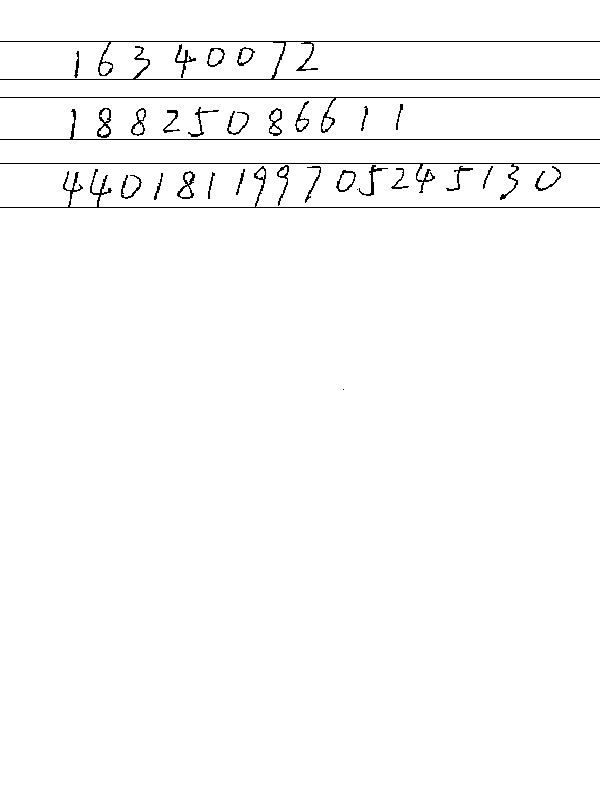 16340072
18825086611
440181199705245130